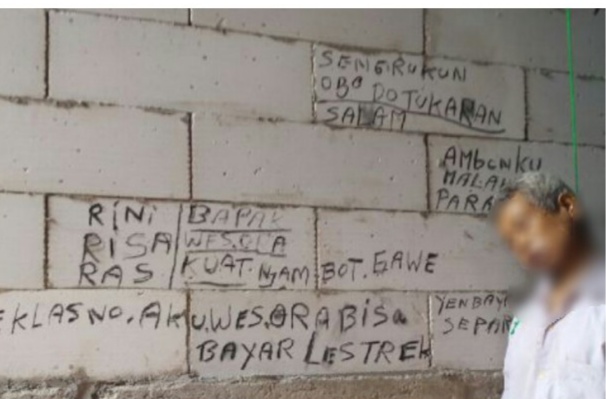 SENGRUKUN
OJO DO TUKARAN
SALAM
AMBUNKU
MALAH
PARA
RINI
RISA
RAS
BAPAK
WES ORA
KUAT. NJAM BOT. GAWE
EKLASNO. AKU. WES. ORA BISA
BAYAR LESTREK
YEN BAY
SEPAR